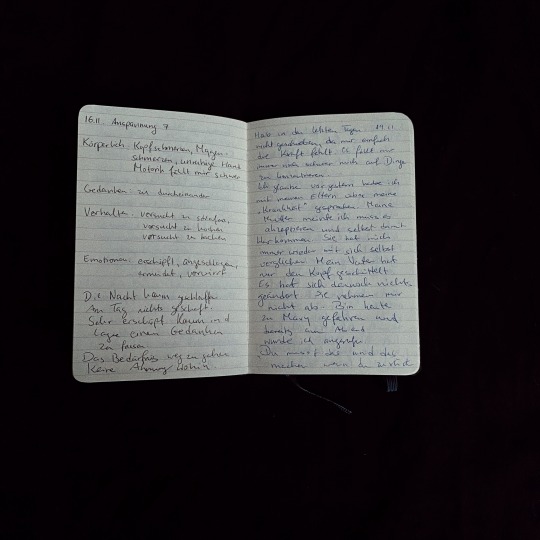 16.11. Anspannung 7
Körperlich: Kopfschmerzen, Magen-
schmerzen, unruhige Hand
Motorik fällt mir schwer
Gedanken: zu durcheinander
Verhalten: versucht zu schlafen,
versucht zu kochen
versucht zu
Emotionen: erschöpft, angeschlagen,
ermüdet, verwirrt
Die Nacht kaum geschlafen
Am Tag nichts geschafft.
Sehr erschöpft. Kaum in d
Lage einen Gedanken
zu fassen
Das Bedürfnis weg zu gehen
Keine Ahnung wohin.
Hab in den letzten Tagen 19.11
nicht geschrieben, da mir einfach
die Kraft fehlt. Es fällt mir
immer schwerer mich auf Dinge
zu konzentrieren.
Ich glaube vorgestern habe ich
mit meinen Eltern über meine
"Krankheit" gesprochen. Meine
Mutter meinte ich muss es
akzeptieren und selbst damit
klarkommen. Sie hat mich
immer wieder mit sich selbst
verglichen. Mein Vater hat
nur den Kopf geschüttelt.
Es hat sich danach nichts
geändert. Sie nehmen mir
nicht ab. Bin heute
zu gefahren und
bereits am Abend
wurde ich
"Du musst das und das
machen wenn du